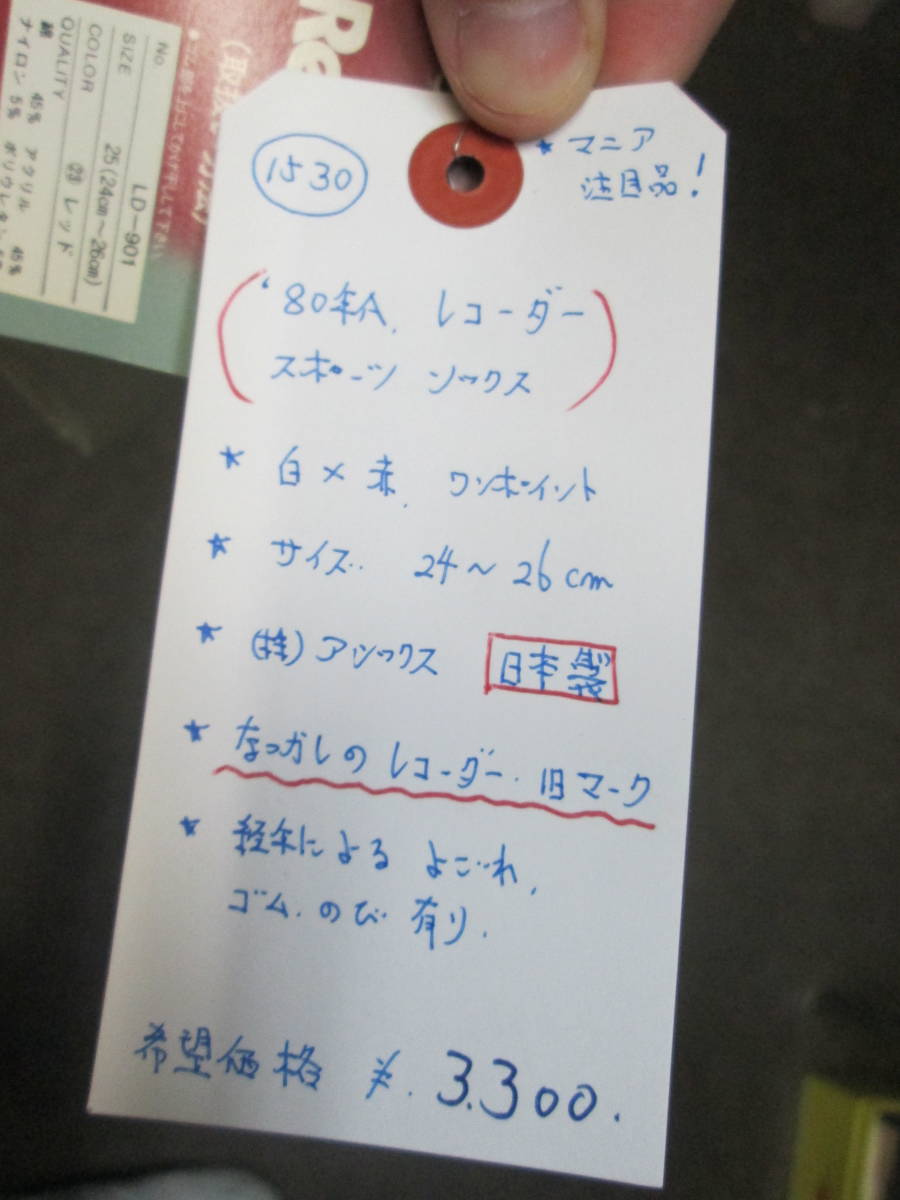 Re
No. LD-901
SIZE 25(24cm〜26cm)
COLOR ㉓ レッド
QUALITY
綿 45% アクリル 45%
ナイロン 5% ポリウレタン
1530
★ マニア
注目品!
'80年代. レコーダー
スポーツ ソックス
★ 白×赤. ワンポイント
★ サイズ.. 24〜26cm
★ (株)アシックス 日本製
★ なつかしの レコーダー. 旧マーク
★ 経年による よごれ.
ゴム. のび 有り.
希望価格 ¥. 3.300.